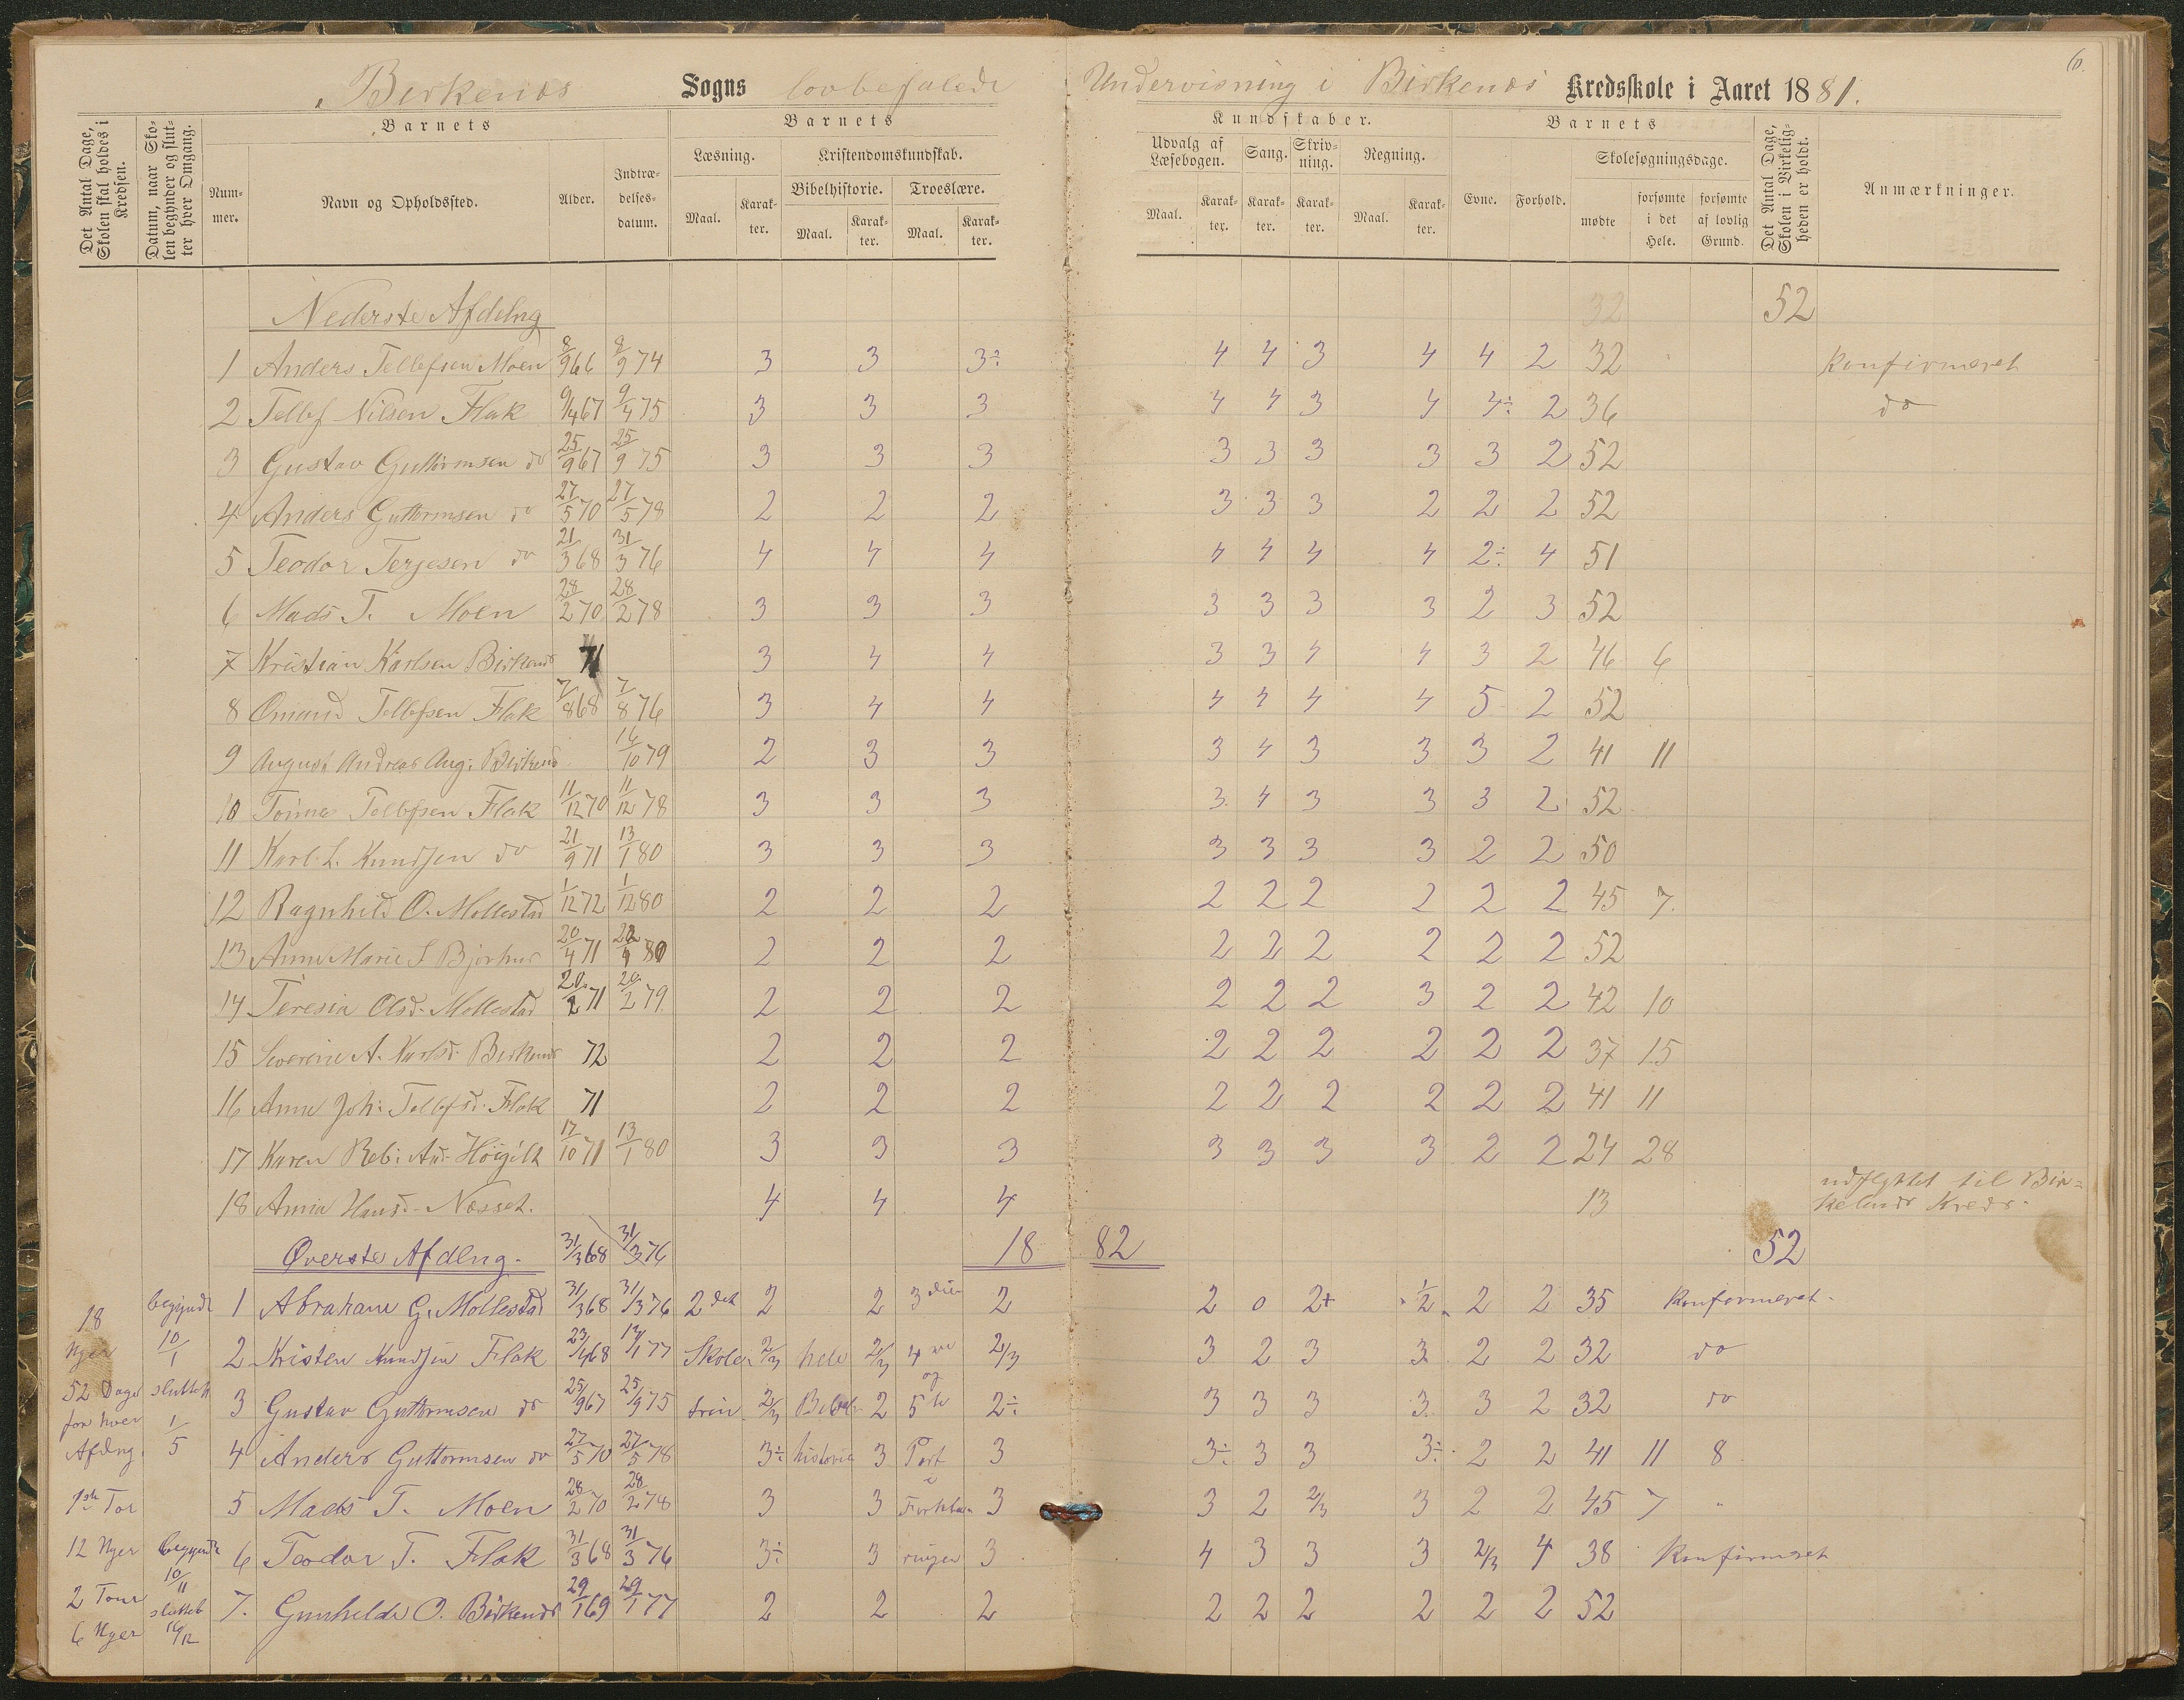 Birkenæs Sogns lovbefalede Undervisning i Birkenæs Kredsskole i Aaret 1881.
6.
Det Antal Dage, Skolen skal holdes i Kredsen.
Datum, naar Skolen begynder og slutter hver Omgang.
Barnets
Nummer.
Navn og Opholdssted.
Alder.
Indtrædelsesdatum.
Barnets
Læsning.
Maal.
Karakter.
Kristendomskundskab.
Bibelhistorie.
Maal.
Karakter.
Troeslære.
Maal.
Karakter.
Kundskaber.
Udvalg af Læsebogen.
Maal.
Karakter.
Sang.
Karakter.
Skrivning.
Karakter.
Regning.
Maal.
Karakter.
Barnets
Evne.
Forhold.
Skolesøgningsdage.
mødte
forsømte i det Hele.
forsømte af lovlig Grund.
Det Antal Dage, Skolen i Virkeligheden er holdt.
Anmærkninger.
Nederste Afdelng 32 52
1 Anders Tellefsen Moen 8/9 66 8/9 74 3 3 3÷ 4 4 3 4 4 2 32 Konfirmeret
2 Tellef Nilsen Flak 9/4 67 9/4 75 3 3 3 4 4 3 4 4÷ 2 36 do
3 Gustav Guttormsen do 25/9 67 25/9 75 3 3 3 3 3 3 3 3 2 52
4 Anders Guttormsen do 27/5 70 27/5 78 2 2 2 3 3 3 2 2 2 52
5 Teodor Terjesen do 21/3 68 31/3 76 4 4 4 4 4 4 4 2÷ 4 51
6 Mads T. Moen 28/2 70 28/2 78 3 3 3 3 3 3 3 2 3 52
7 Kristian Karlsen Birkenæs 71 3 4 4 3 3 4 4 3 2 46 6
8 Omund Tellefsen Flak 7/8 68 7/8 76 3 4 4 4 4 4 4 5 2 52
9 August Andreas Aug: Birkenæs 16/10 79 2 3 3 3 4 3 3 3 2 41 11
10 Tellefsen Flak 11/12 70 11/12 78 3 3 3 3 4 3 3 3 2 52
11 Karl L. Knudsen do 21/9 71 13/1 80 3 3 3 3 3 3 3 2 2 50
12 Ragnhild O. Mollestad 1/12 72 1/12 80 2 2 2 2 2 2 2 2 2 45 7
13 Anne Marie S Bjorhus 20/4 71 80 2 2 2 2 2 2 2 2 2 52
14 Teresia Olsd. Mollestad 20/2 71 20/2 79 2 2 2 2 2 2 3 2 2 42 10
15 Severine A. Karlsd. Birkenæs 72 2 2 2 2 2 2 2 2 2 37 15
16 Anne Joh: Tellefsd. Flak 71 2 2 2 2 2 2 2 2 2 41 11
17 Karen Reb: And. Høigilt 17/10 71 13/1 80 3 3 3 3 3 3 3 2 2 24 28
18 Anna Hansd. Næsset. 4 4 4 13 udflyttet til Birkelands Kreds.
Øverste Afdlng. 31/3 68 31/3 76 18 82 52
18 begyndt 1 Abraham G. Mollestad 31/3 68 31/3 76 2det 2 2 3die 2 2 0 2+ 1/2 2 2 35 Konfirmeret
Uger 10/1 2 Kristen Knudsen Flak 23/4 68 13/1 77 Skole- 2/3 hele 2/3 4de 2/3 3 2 3 3 2 2 32 do
52 Dage sluttet 3 Gustav Guttormsen do 25/9 67 25/9 75 trin 2/3 Bibel- 2 og 5te 2÷ 3 3 3 3 3 2 32 do
for hver Afdlng. 1/5 4 Anders Guttormsen do 27/5 70 27/5 78 3÷ historie 3 Part 3 3÷ 3 3 3÷ 2 2 41 11 8
1ste Tor 5 Mads T. Moen 28/2 70 28/2 78 3 3 i Forkla- 3 3 2 2/3 3 2 2 45 7 "
12 Uger begyndt 10/11 6 Teodor T. Flak 31/3 68 31/3 76 3÷ 3 ringen 3 4 3 3 3 2/3 4 38 Konfirmeret
2 Tour sluttet 7. Gunhilde O. Birkenæs 29/1 69 29/1 77 2 2 2 2 2 2 2 2 2 52
6 Uger